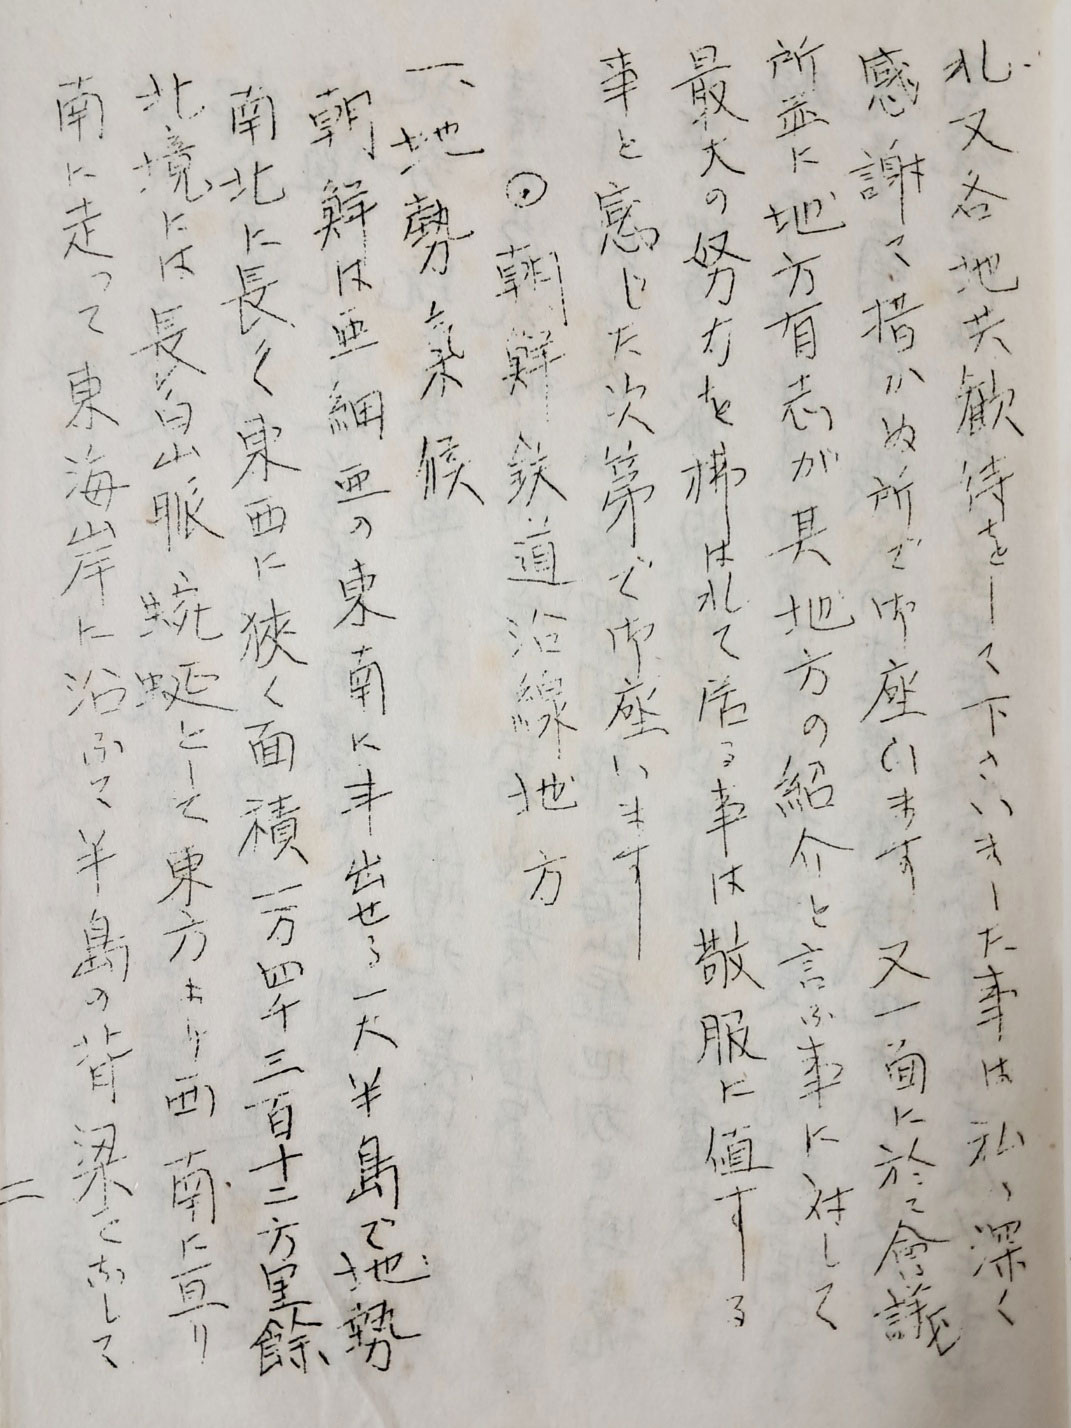 れ又各地共歓待をして下さいました事は私の深く
感謝て措かぬ所で御座います又一面に於て會議
所並に地方有志が其地方の紹介と言ふ事に対して
最大の努力を拂はれて居る事は敬服に値する
事と感じた次第で御座います
⊙朝鮮鉄道沿線地方
一、地勢氣候
朝鮮は亜細亜の東南に半出せる一大半島で地勢
南北に長く東西に狹く面積一万四千三百十二方里餘
北境には長白山脈蜿蜒として東方より西南に亘り
南に走って東海岸に沿ふて半島の背梁をなして
二